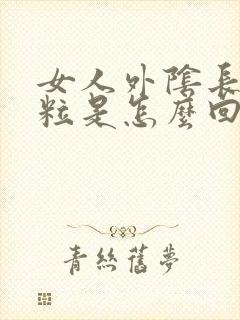 女人外陰長
粒是怎麼回
青絲舊夢